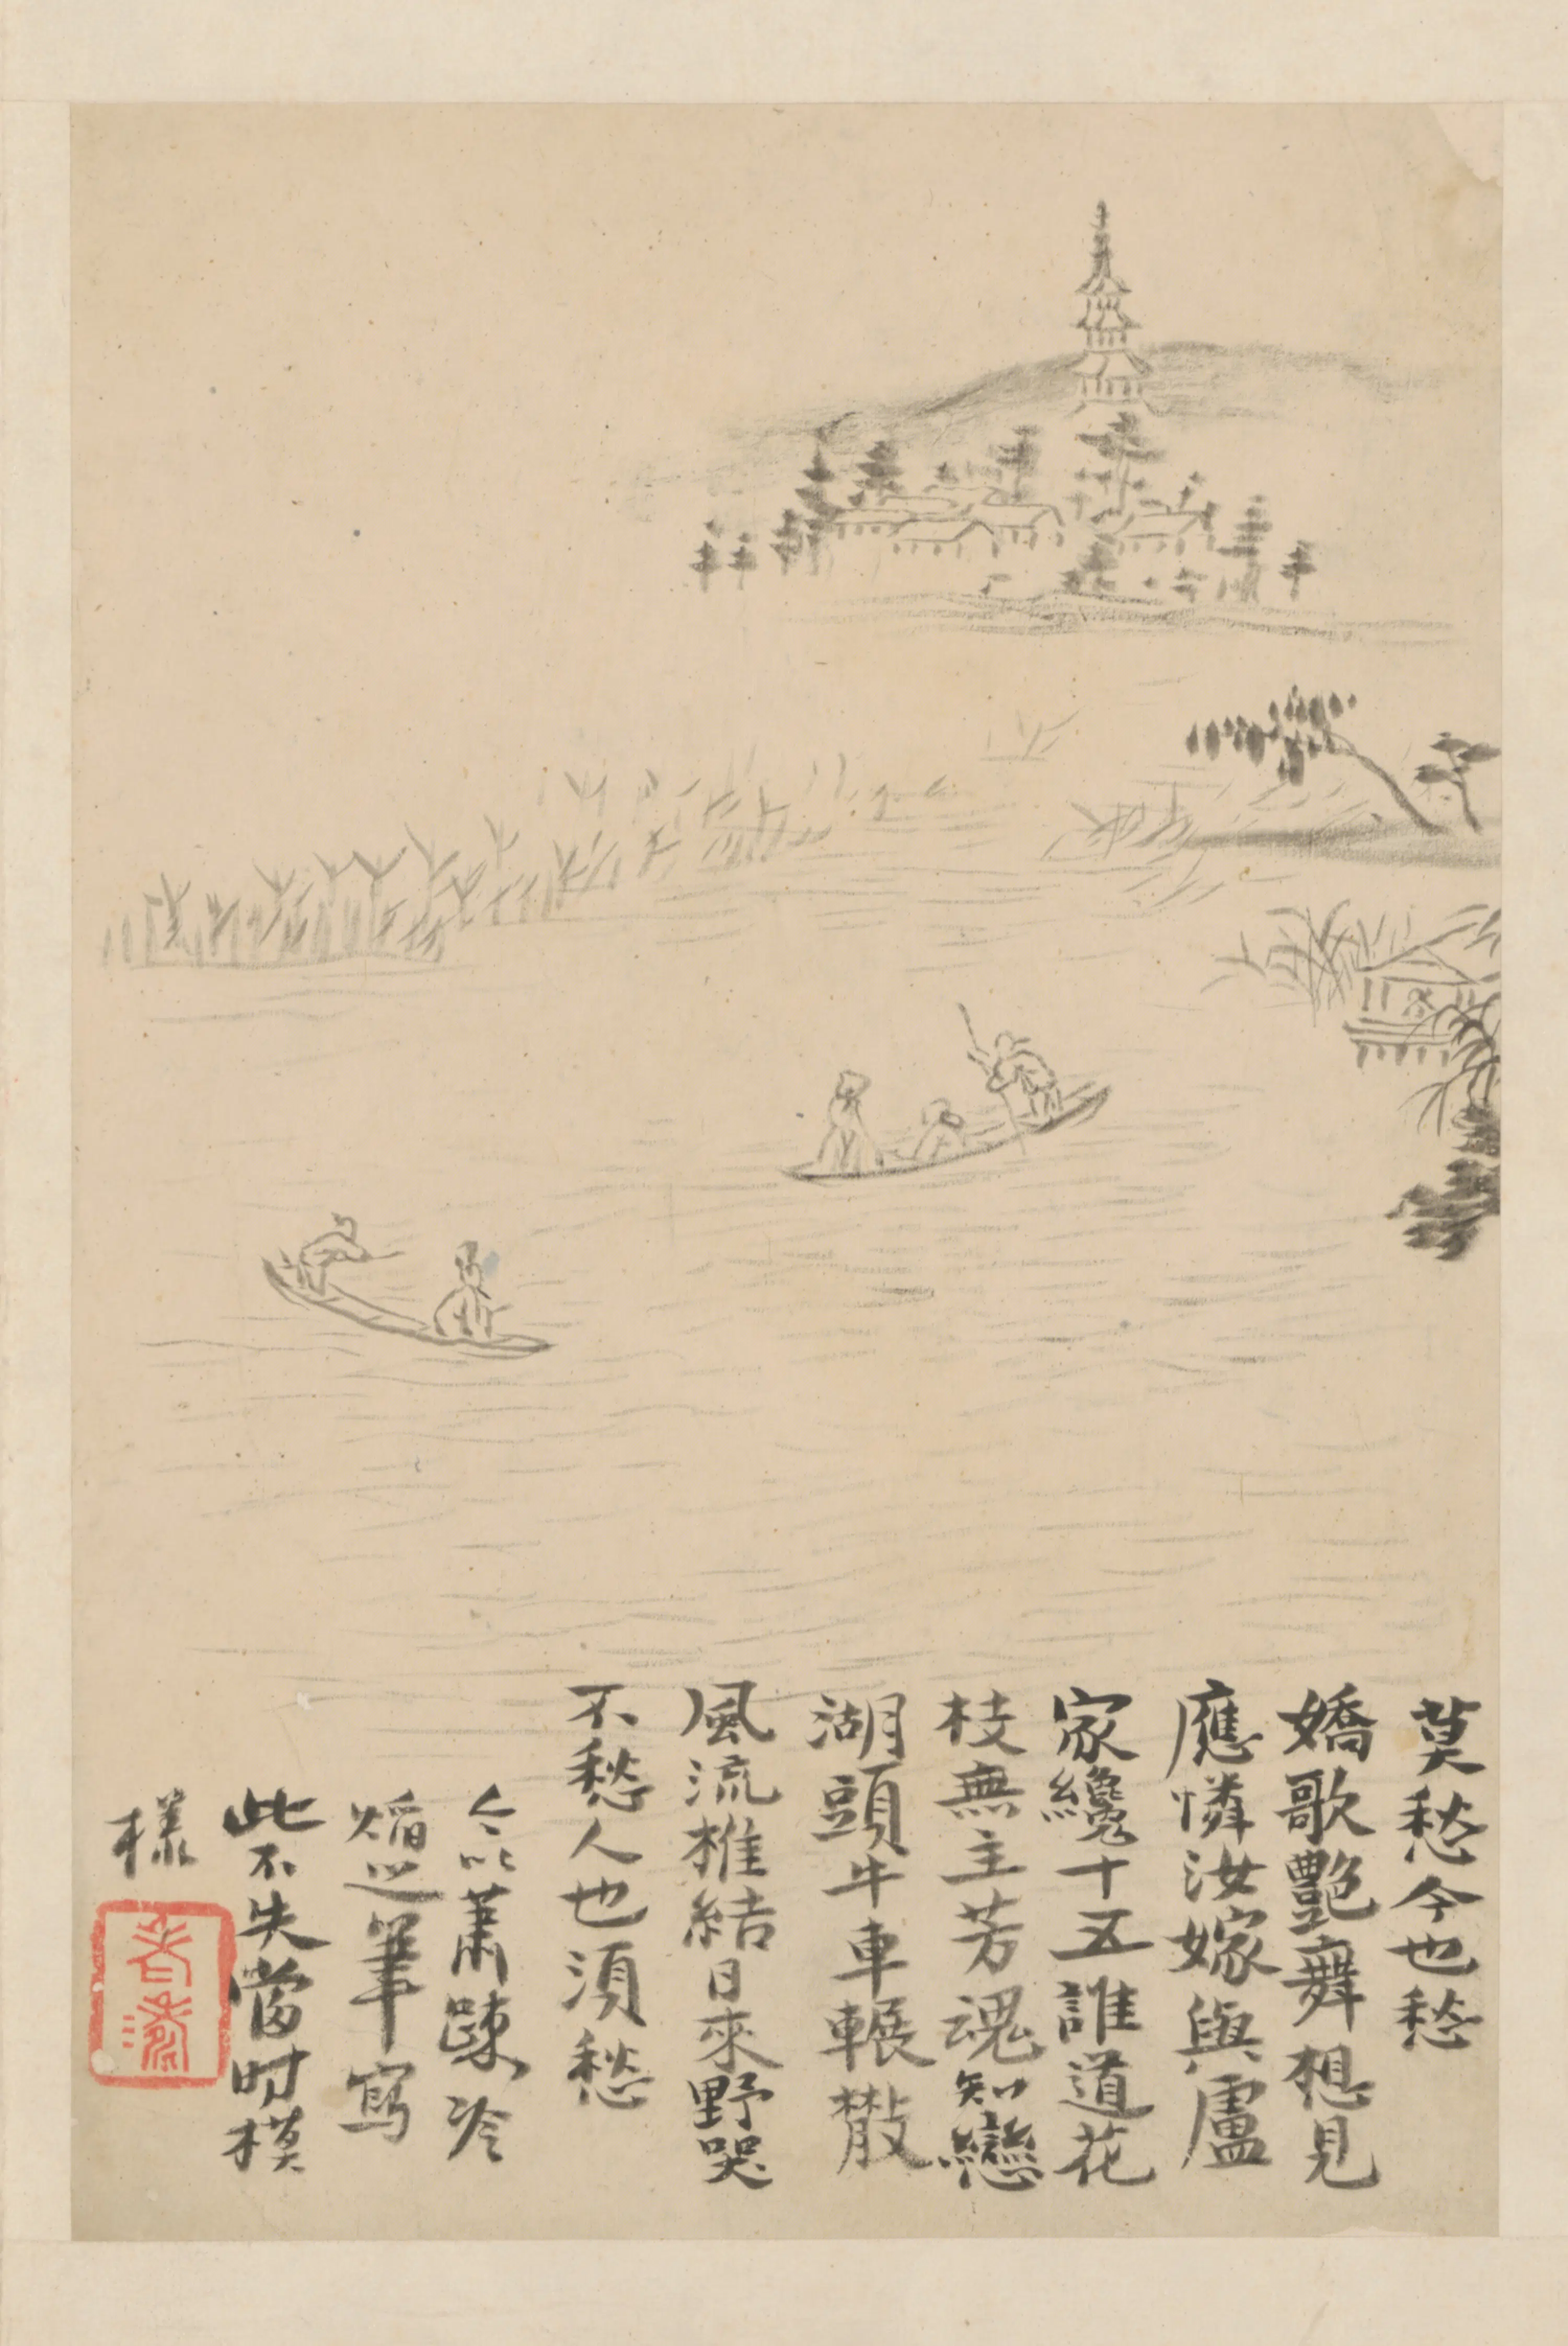 莫愁今也愁
嬌歌艷舞想見
應憐汝嫁與盧
家纔十五誰道花
枝無主芳魂知戀
湖頭牛車輾散
風流椎結日來野哭
不愁人也須愁
今以蕭疎冷
焰之筆寫
此不失當時模
樣